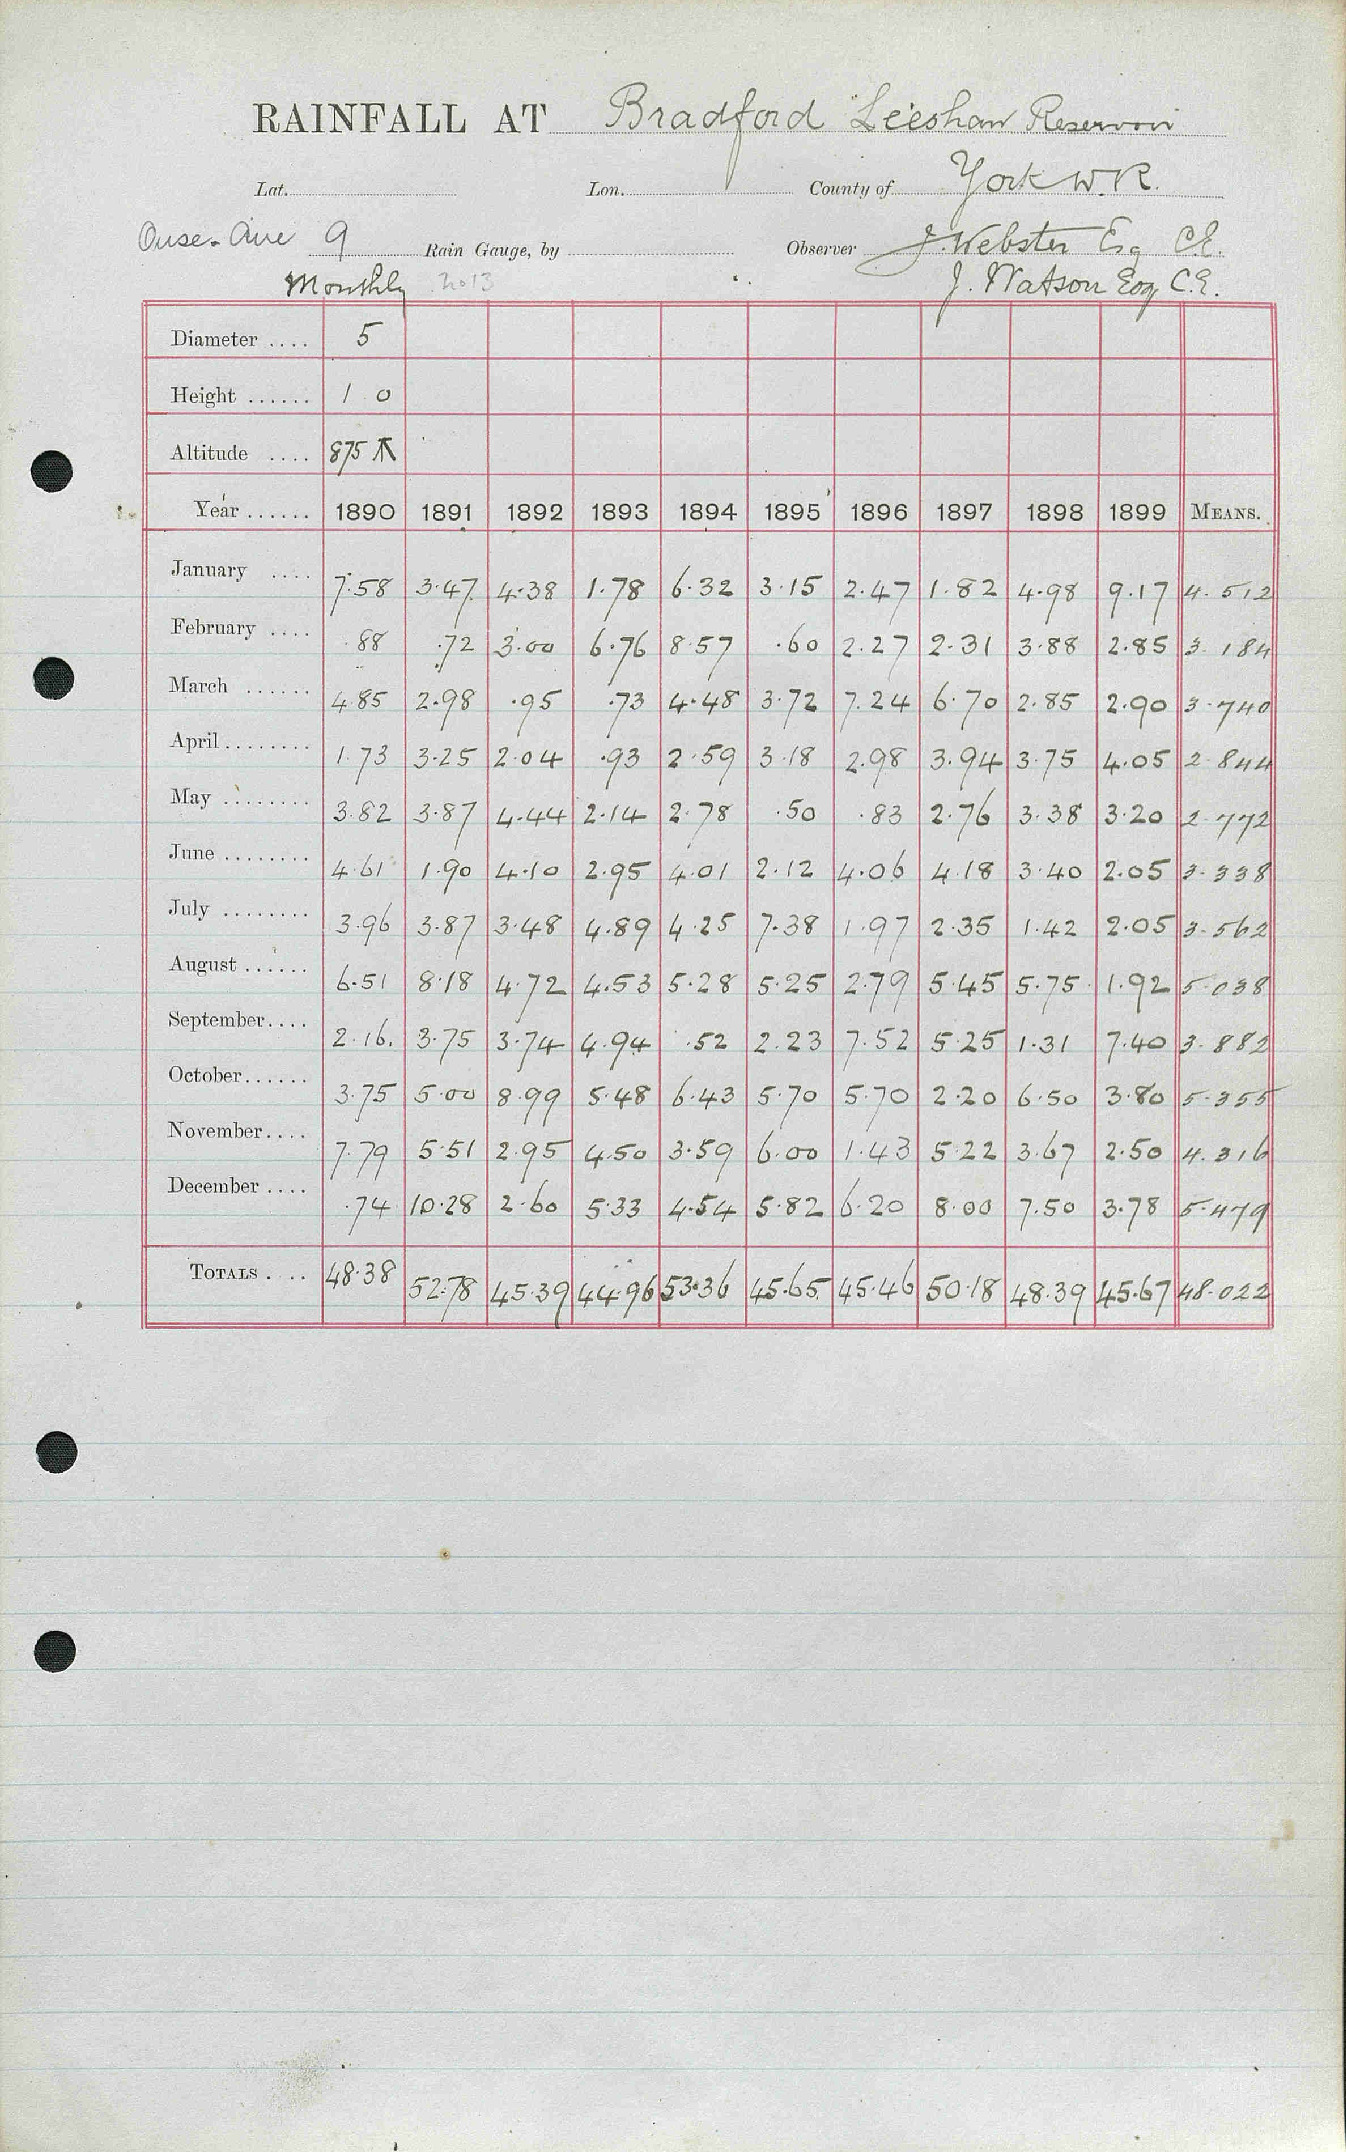 RAINFALL AT Bradford Leeshaw Reservoir
Lat. Lon. County of York W.R.
Ouse-Aire 9 Rain Gauge, by Observer J. Webster Esq C.E.
Monthly 2013 J. Watson Esq C.E.
Diameter .... 5
Height ...... 1 0
Altitude .... 875 ⊼
Year ...... 1890 1891 1892 1893 1894 1895 1896 1897 1898 1899 MEANS.
January .... 7.58 3.47 4.38 1.78 6.32 3.15 2.47 1.82 4.98 9.17 4.512
February .... .88 .72 3.00 6.76 8.57 .60 2.27 2.31 3.88 2.85 3.184
March ...... 4.85 2.98 .95 .73 4.48 3.72 7.24 6.70 2.85 2.90 3.740
April ........ 1.73 3.25 2.04 .93 2.59 3.18 2.98 3.94 3.75 4.05 2.844
May ........ 3.82 3.87 4.44 2.14 2.78 .50 .83 2.76 3.38 3.20 2.772
June ........ 4.61 1.90 4.10 2.95 4.01 2.12 4.06 4.18 3.40 2.05 3.338
July ........ 3.96 3.87 3.48 4.89 4.25 7.38 1.97 2.35 1.42 2.05 3.562
August ...... 6.51 8.18 4.72 4.53 5.28 5.25 2.79 5.45 5.75 1.92 5.038
September.... 2.16. 3.75 3.74 4.94 .52 2.23 7.52 5.25 1.31 7.40 3.882
October...... 3.75 5.00 8.99 5.48 6.43 5.70 5.70 2.20 6.50 3.80 5.355
November.... 7.79 5.51 2.95 4.50 3.59 6.00 1.43 5.22 3.67 2.50 4.316
December .... .74 10.28 2.60 5.33 4.54 5.82 6.20 8.00 7.50 3.78 5.479
TOTALS .... 48.38 52.78 45.39 44.96 53.36 45.65 45.46 50.18 48.39 45.67 48.022